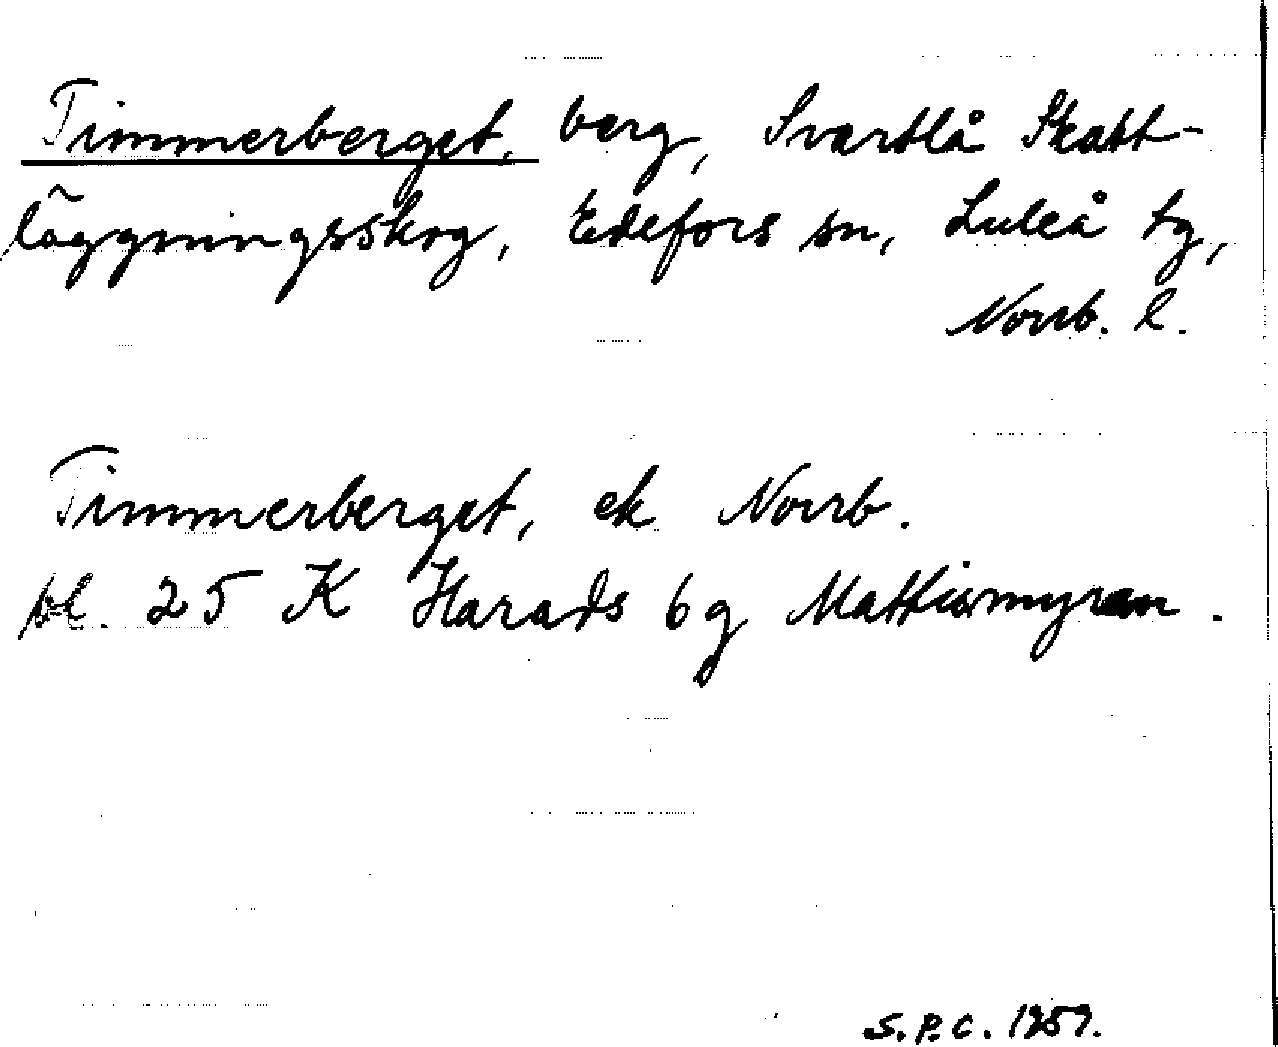 Timmerberget, berg, Svartlå Skatt-
läggningsskog, Edefors sn, Luleå tg,
Norrb. l.
Timmerberget, ek Norrb.
bl. 25 K Harads 6 g Mattismyran.
S.P.C. 1959.